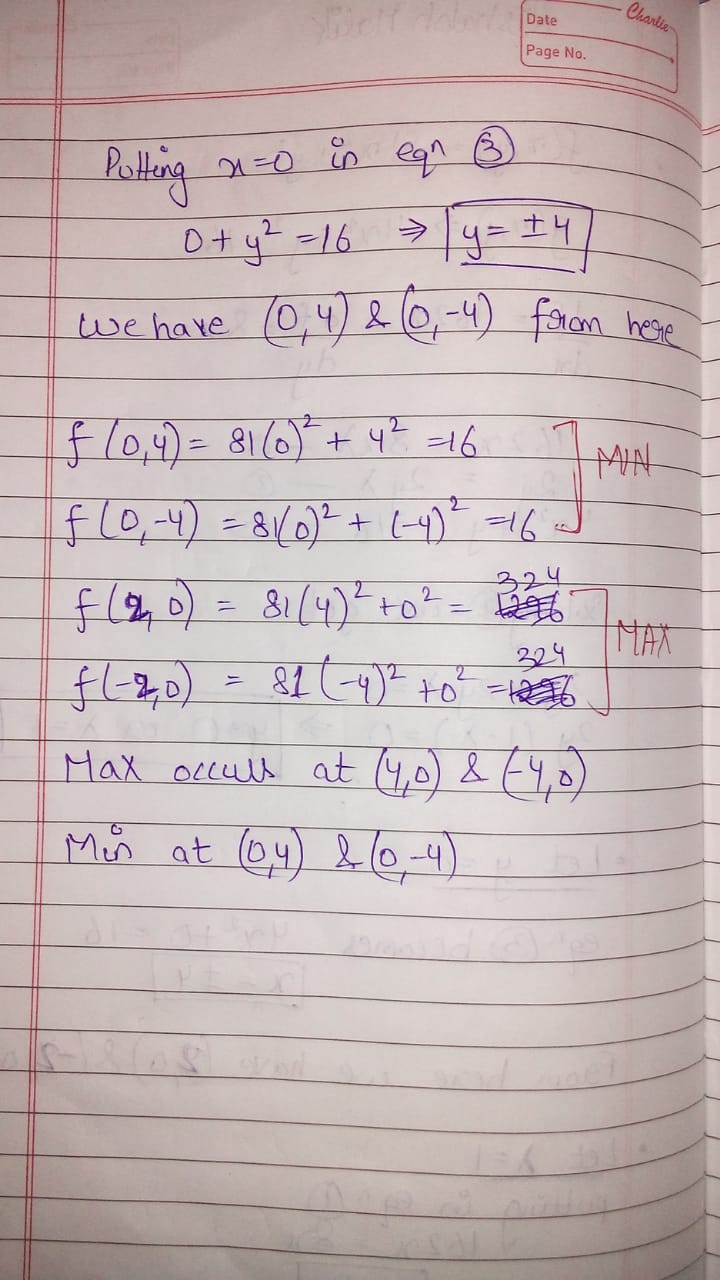 Date
Charlie
Page No.
Putting x=0 in eqn ③
0 + y² = 16 ⇒ y = ±4
We have (0,4) & (0,-4) from here
f(0,4) = 81(0)² + 4² = 16
MIN
f(0,-4) = 81(0)² + (-4)² = 16
f(2,0) = 81(4)² + 0² = 324
MAX
f(-2,0) = 81(-4)² + 0² = 324
Max occurs at (4,0) & (-4,0)
Min at (0,4) & (0,-4)